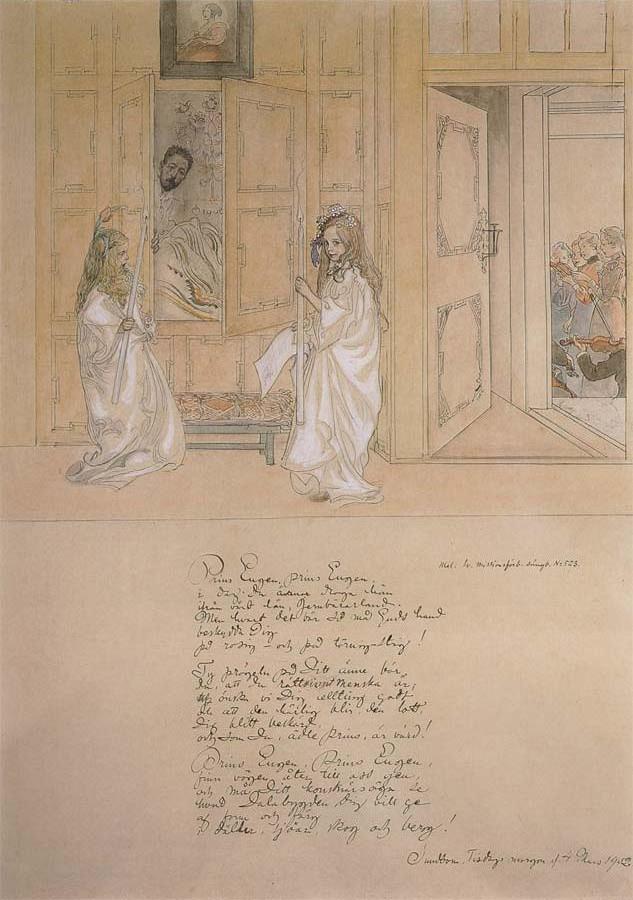 Mel: Sv. missionsförb. sångb. No 523.
Prins Eugen, prins Eugen,
i dag Du draga hän
ifrån vårt län, Jernbäraland.
Men hvart det bär så må Guds hand
beskydda Dig
på rosig – och på törnig stig!
Ty prägeln på Ditt änne bär
du, att du rättsint menska är,
önska vi Dig allting godt
att den blir, den lott,
Dig blitt beskärd,
och som Du, ädle prins, är värd!
Prins Eugen, Prins Eugen,
finn vägen åter till oss gen,
och må Ditt konstnärsöga se
hvad Dalabygden Dig vill ge
af form och färg
i dälder, sjöar, skog och berg!
Sundborn, Tisdags morgon d. 4 Mars 1902